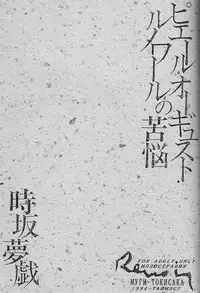 ピエール・オーギュスト
ルノワールの苦悩
時坂夢戯
FOR ADULT ONLY
ИЛЛЮСТРАЦИЯ
Renoir
MUGI-TOKISAKA